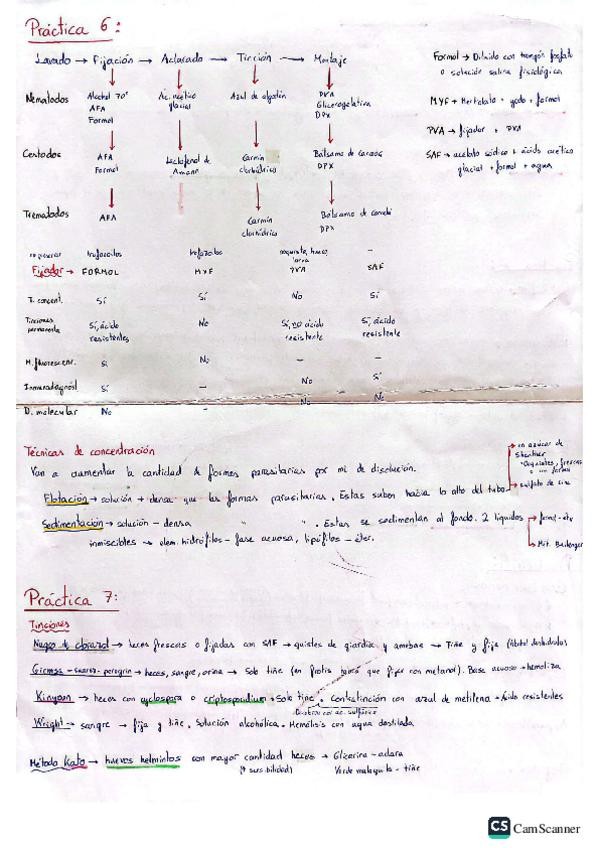 Práctica 6:
Lavado → Fijación → Aclarado → Tinción → Montaje
Formol → Diluido con tampón fosfato
o solución salina fisiológica
Nematodos Alcohol 70° Ac. acético Azul de algodón PVA
AFA glacial Glicerogelatina
Formol DPX
MYF → Mertiolato + yodo + formol
PVA → fijador + PVA
SAF → acetato sódico + ácido acético
glacial + formol + agua
Cestodos AFA Lactofenol de Carmín Bálsamo de Canadá
Formol Amann clorhídrico DPX
Trematodos AFA Carmín Bálsamo de Canadá
clorhídrico DPX
trofozoitos trofozoitos quiste, huevo, –
larva
Fijador → FORMOL MYF PVA SAF
T. concent. Sí Sí No Sí
Tinciones Sí, ácido No Sí, no ácido Sí, ácido
permanente resistentes resistente resistente
M. fluorescen. Sí No – –
Inmunodiagnóst Sí – No Sí
D. molecular No – No No
Técnicas de concentración
Van a aumentar la cantidad de formas parasitarias por ml de disolución.
Flotación → solución + densa que las formas parasitarias. Estas suben hacia lo alto del tubo
en azúcar de
Sheather
sulfato de zinc
Sedimentación → solución – densa " " . Estas se sedimentan al fondo. 2 líquidos
inmiscibles → elem. hidrófilos – fase acuosa, lipófilos – éter.
formol-éter
Mét. Bailenger
Práctica 7:
Tinciones
Negro de clorazol → heces frescas o fijadas con SAF → quistes de giardia y amebas → Tiñe y fija (Alcohol deshidrata)
Giemsa → heces, sangre, orina → Solo tiñe (en frotis habrá que fijar con metanol). Base acuosa → hemoliza.
Kinyoun → heces con cyclospora o criptosporidium → Solo tiñe. Contratinción con azul de metileno → Ácido resistentes
Decolora con ac. sulfúrico
Wright → sangre → fija y tiñe. Solución alcohólica. Hemólisis con agua destilada.
Método Kato → huevos helmintos con mayor cantidad heces → Glicerina – aclara
(↑ sensibilidad) Verde malaquita – tiñe
CS CamScanner